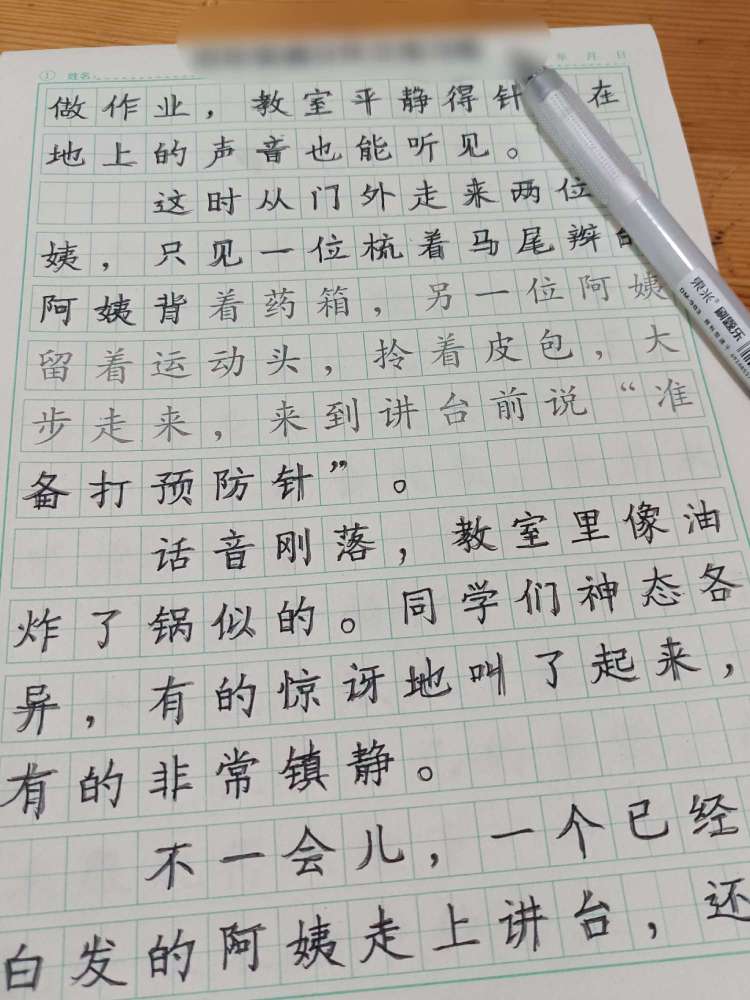 ① 姓名: 年 月 日
做作业，教室平静得针 在
地上的声音也能听见。
这时从门外走来两位
姨，只见一位梳着马尾辫的
阿姨背着药箱，另一位阿姨
留着运动头，拎着皮包，大
步走来，来到讲台前说“准
备打预防针”。
话音刚落，教室里像油
炸了锅似的。同学们神态各
异，有的惊讶地叫了起来，
有的非常镇静。
不一会儿，一个已经
白发的阿姨走上讲台，还